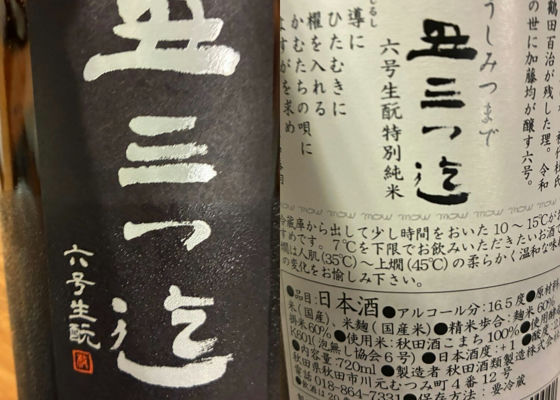 丑三つ迄
六号生酛
鶴田百治が残した理。令和
の世に加藤均が醸す六号。
うしみつまで
丑三つ迄
六号生酛特別純米
しるし
導に
ひたむきに
櫂を入れる
かむたちの唄に
よすがを求め
冷蔵庫から出して少し時間をおいた10〜15℃が
すめです。7℃を下限でお飲みいただきたいお酒で
燗は人肌(35℃)〜上燗(45℃)の柔らかく温和な味
の変化をお愉しみ下さい。
●品目:日本酒●アルコール分:16.5度●原材料
米(国産)、米麹(国産米)●精米歩合:麹米60%
掛米60%●使用米:秋田酒こまち100%●使用酵
K601(泡無し協会6号)●日本酒度:+1●酸
●内容量:720ml●製造者 秋田酒類製造株式
秋田県秋田市川元むつみ町4番12号
電話018-864-7331●保存方法:要冷蔵